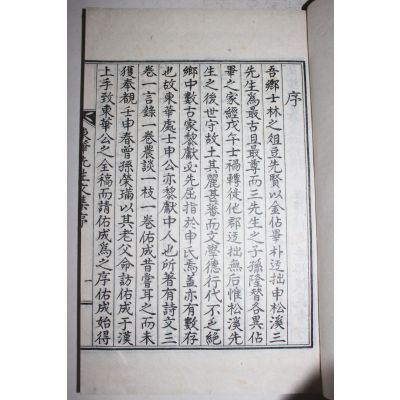 序
吾鄉士林之俎豆先賢以金佔畢朴迃拙申松溪三
先生爲最古且最尊而三先生之子孫隆替各異佔
畢之家經戊午士禍轉徙他郡迃拙無后惟松溪先
生之後世守故土其麗甚蕃而文學德行代不乏絕
鄉中數古家黎獻必先屈指於申氏焉盖亦有數存
也故東華處士申公亦黎獻中人也所著有詩文三
卷一言錄一卷農談一枝一卷佑成昔嘗耳之而未
獲奉覩壬申春曾孫榮瑞以其老父命訪佑成于漢
上手致東華公之全稿而請佑成爲之序佑成始得
先生文集序
一